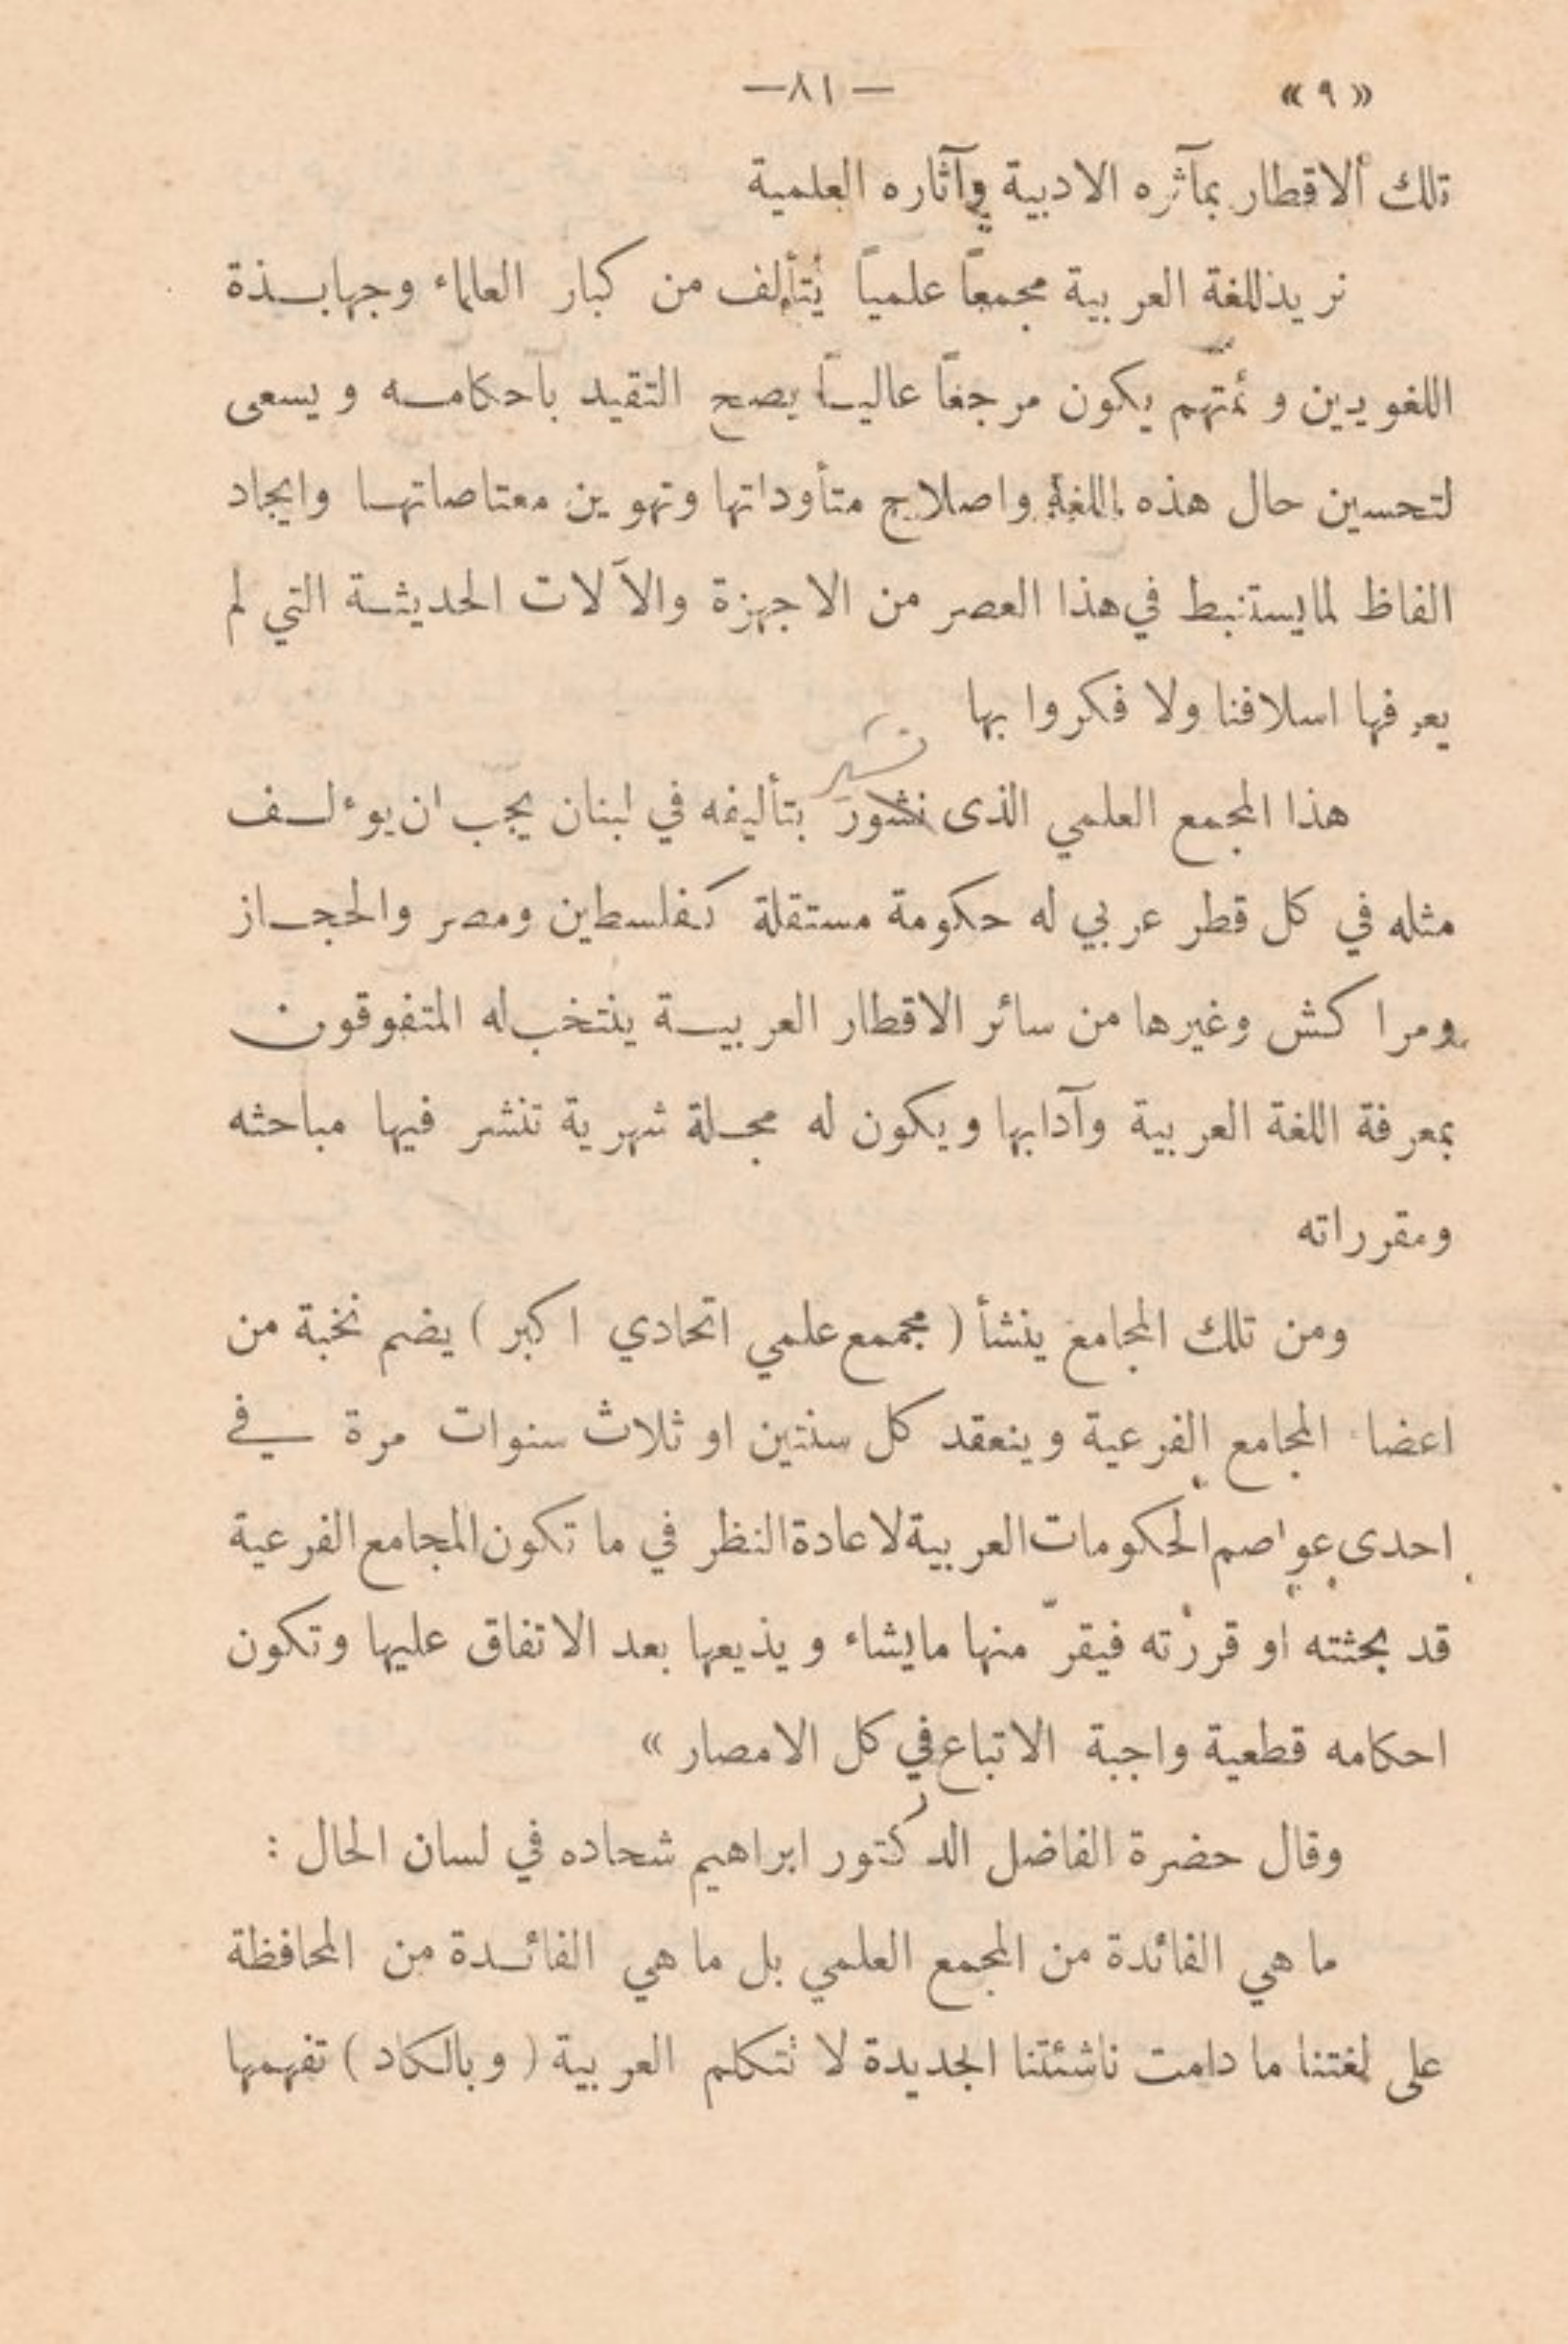 «٩» —٨١—
تلك الاقطار بمآثره الادبية وآثاره العلمية
نريد للغة العربية مجمعاً علمياً يُتألف من كبار العلماء وجهابـذة
اللغويين وئمتهم يكون مرجعاً عاليـاً يصح التقيد باحكامـه ويسعى
لتحسين حال هذه اللغة واصلاح متأوداتها وتهوين معتاصاتهـا وايجاد
الفاظ لما يستنبط في هذا العصر من الاجهزة والآلات الحديثـة التي لم
يعرفها اسلافنا ولا فكروا بها
نشير
هذا المجمع العلمي الذى نشور بتأليفه في لبنان يجب ان يوءلـف
مثله في كل قطر عربي له حكومة مستقلة كفلسطين ومصر والحجـاز
ومراكش وغيرها من سائر الاقطار العربيـة ينتخب له المتفوقون
بمعرفة اللغة العربية وآدابها ويكون له مجـلة شهرية تنشر فيها مباحثه
ومقرراته
ومن تلك المجامع ينشأ ( مجمع علمي اتحادي اكبر ) يضم نخبة من
اعضاء المجامع الفرعية وينعقد كل سنتين او ثلاث سنوات مرة في
احدى عواصم الحكومات العربية لاعادة النظر في ما تكون المجامع الفرعية
قد بحثته او قررته فيقرّ منها ما يشاء ويذيعها بعد الاتفاق عليها وتكون
احكامه قطعية واجبة الاتباع في كل الامصار »
وقال حضرة الفاضل الدكتور ابراهيم شحاده في لسان الحال :
ما هي الفائدة من المجمع العلمي بل ما هي الفائـدة من المحافظة
على لغتنا ما دامت ناشئتنا الجديدة لا تتكلم العربية ( وبالكاد ) تفهمها